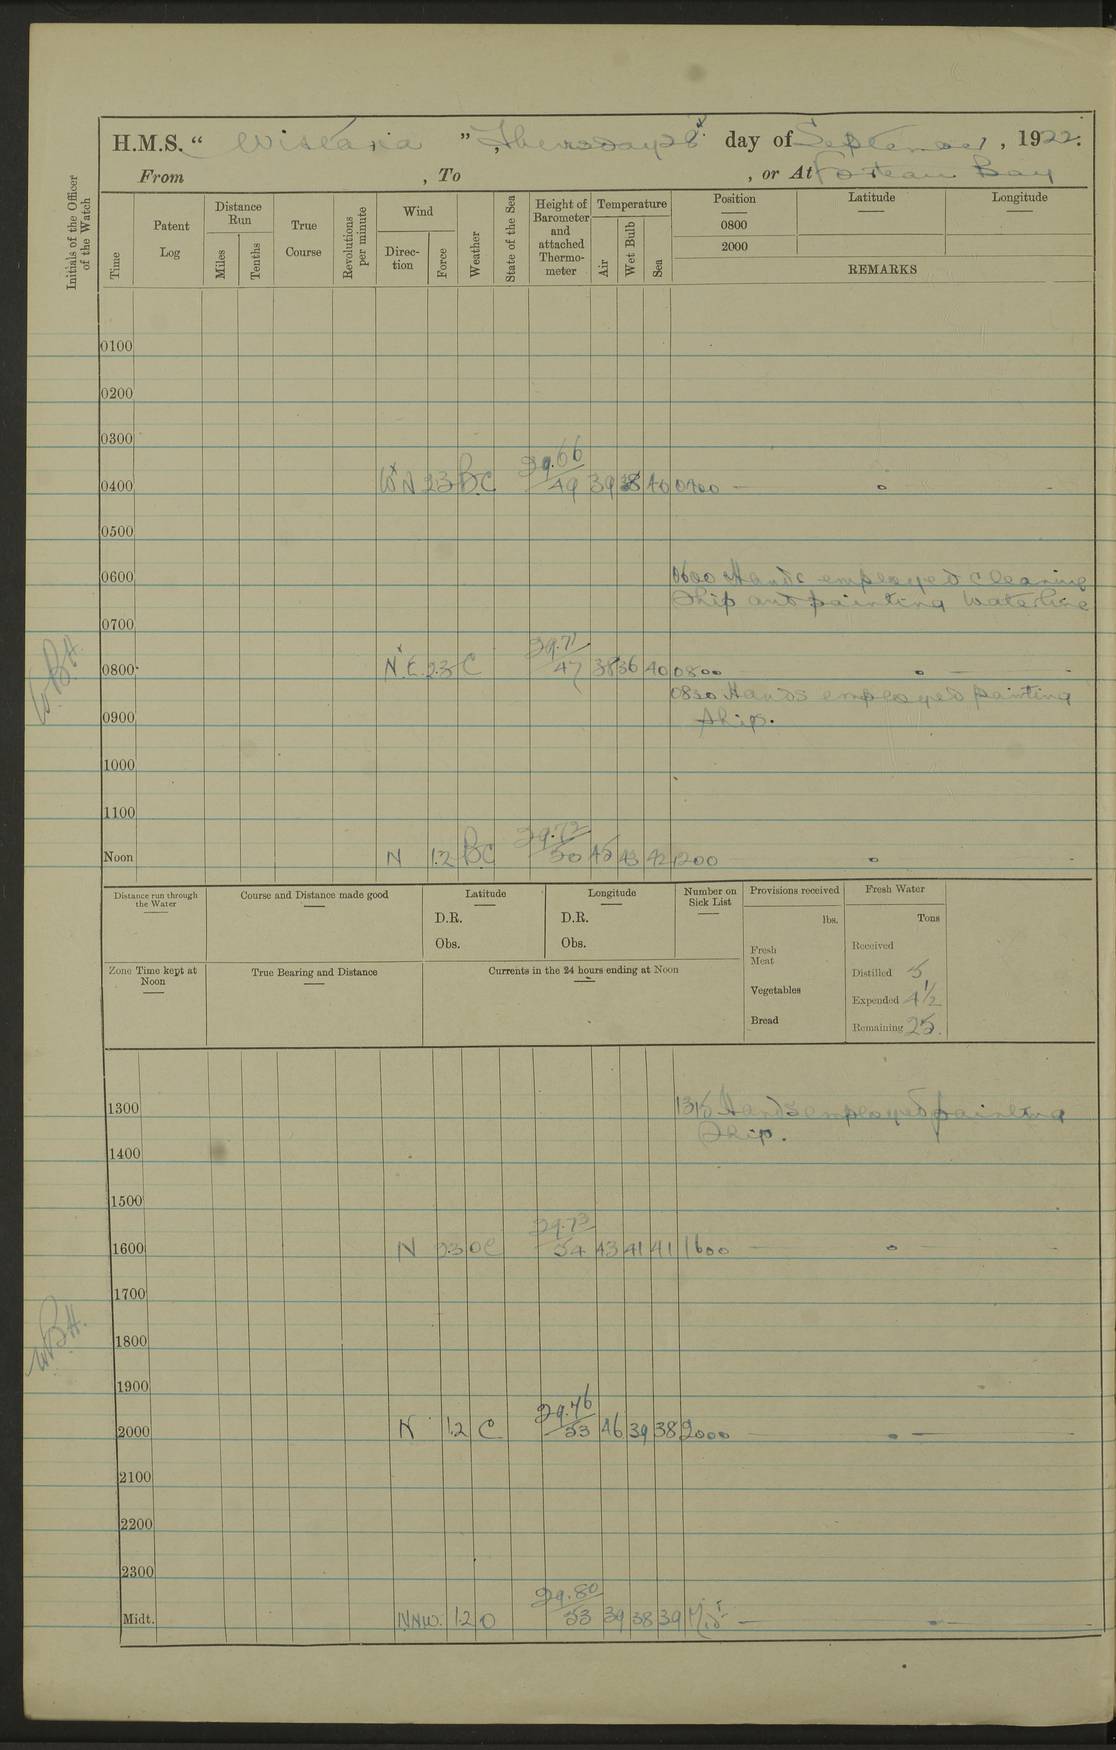 H.M.S. “ Wistaria ”, Thursday 28 day of September, 1922.
From , To , or At Forteau Bay
Initials of the Officer of the Watch
Time
Patent Log
Distance Run
Miles
Tenths
True Course
Revolutions per minute
Wind
Direc-tion
Force
Weather
State of the Sea
Height of Barometer and attached Thermo-meter
Temperature
Air
Wet Bulb
Sea
Position
0800
2000
Latitude
Longitude
REMARKS
0100
0200
0300
29.66
0400 2.3 BC 49 39 38 40 0400
0500
0600 0600 Hands employed cleaning
Ship and painting Waterline
0700
29.71
0800 N.E. 2.3 C 47 38 36 40 0800
W.B.H.
0830 Hands employed painting
Ship.
0900
1000
1100
29.72
Noon N 1.2 BC 50 45 43 42 1200
Distance run through the Water
Course and Distance made good
Latitude
D.R.
Obs.
Longitude
D.R.
Obs.
Number on Sick List
Provisions received
lbs.
Fresh Meat
Vegetables
Bread
Fresh Water
Tons
Received
Distilled 5
Expended 4½
Remaining 25.
Zone Time kept at Noon
True Bearing and Distance
Currents in the 24 hours ending at Noon
1300 1315 Hands employed painting
Ship.
1400
1500
29.73
1600 N 2.3 OC 54 43 41 41 1600
1700
1800
W.B.H.
1900
29.76
2000 N 1.2 C 53 46 39 38 2000
2100
2200
2300
29.80
Midt. NNW. 1.2 O 53 39 38 39 Midt